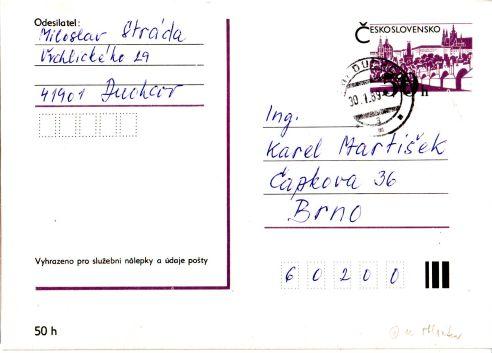 Odesílatel:
Miloslav Stráda
Vrchlického 29
41901 Duchcov
ČESKOSLOVENSKO
50 h
DUCHCOV
30.1.89
Ing.
Karel Martišek
Čapkova 36
Brno
60200
Vyhrazeno pro služební nálepky a údaje pošty
50 h